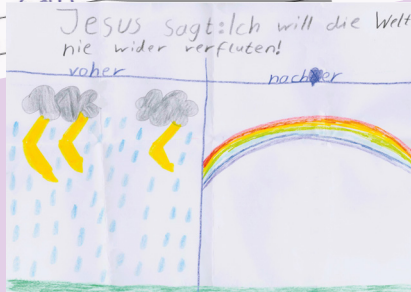 Jesus sagt: Ich will die Welt
nie wider verfluten!
voher nachher